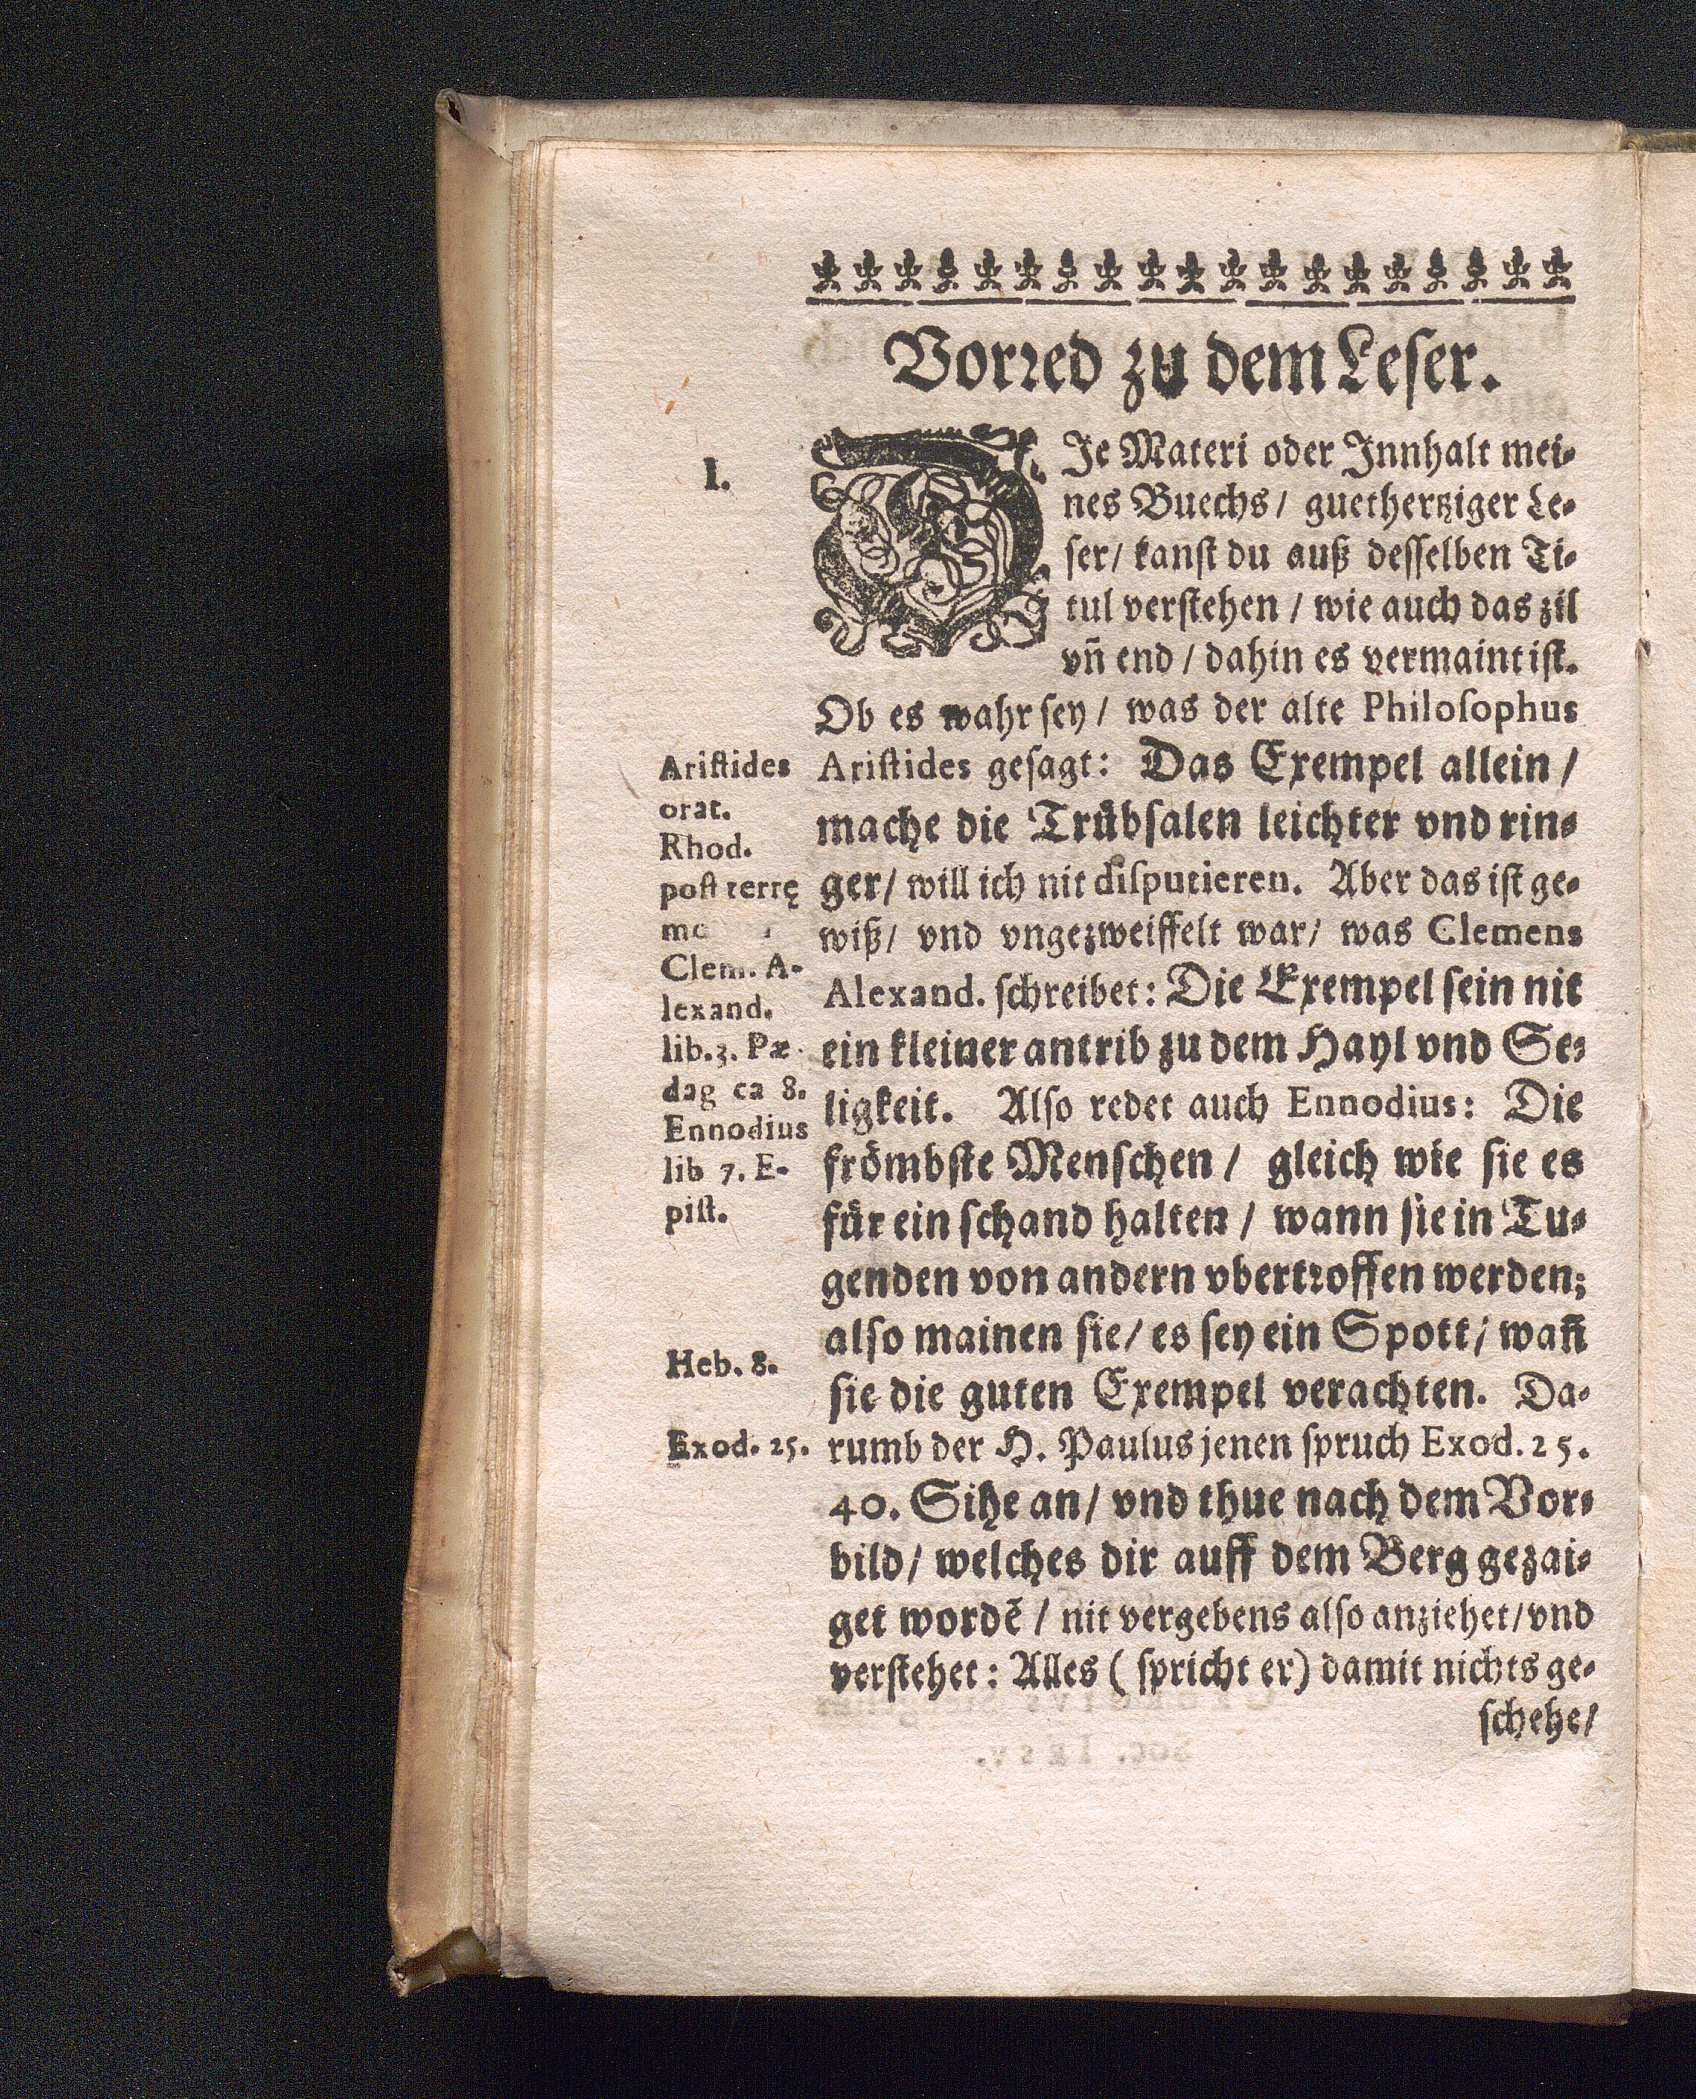 Vorred zu dem Leser.
I.
DJe Materi oder Jnnhalt mei-
nes Buechs / guethertziger Le-
ser / kanst du auß desselben Ti-
tul verstehen / wie auch das zil
vñ end / dahin es vermaint ist.
Ob es wahr sey / was der alte Philosophus
Aristides gesagt: Das Exempel allein /
mache die Trůbsalen leichter vnd rin-
ger / will ich nit disputieren. Aber das ist ge-
wiß / vnd vngezweiffelt war / was Clemens
Alexand. schreibet: Die Exempel sein nit
ein kleiner antrib zu dem Hayl vnd Se-
ligkeit. Also redet auch Ennodius: Die
frömbste Menschen / gleich wie sie es
für ein schand halten / wann sie in Tu-
genden von andern vbertroffen werden;
also mainen sie / es sey ein Spott / wañ
sie die guten Exempel verachten. Da-
rumb der H. Paulus jenen spruch Exod. 25.
40. Sihe an / vnd thue nach dem Vor-
bild / welches dir auff dem Berg gezai-
get wordẽ / nit vergebens also anziehet / vnd
verstehet: Alles ( spricht er) damit nichts ge-
schehe /
Aristides
orat.
Rhod.
post terrę
Clem. A-
lexand.
lib. 3. Pæ-
dag ca 8.
Ennodius
lib 7. E-
pist.
Heb. 8.
Exod. 25.